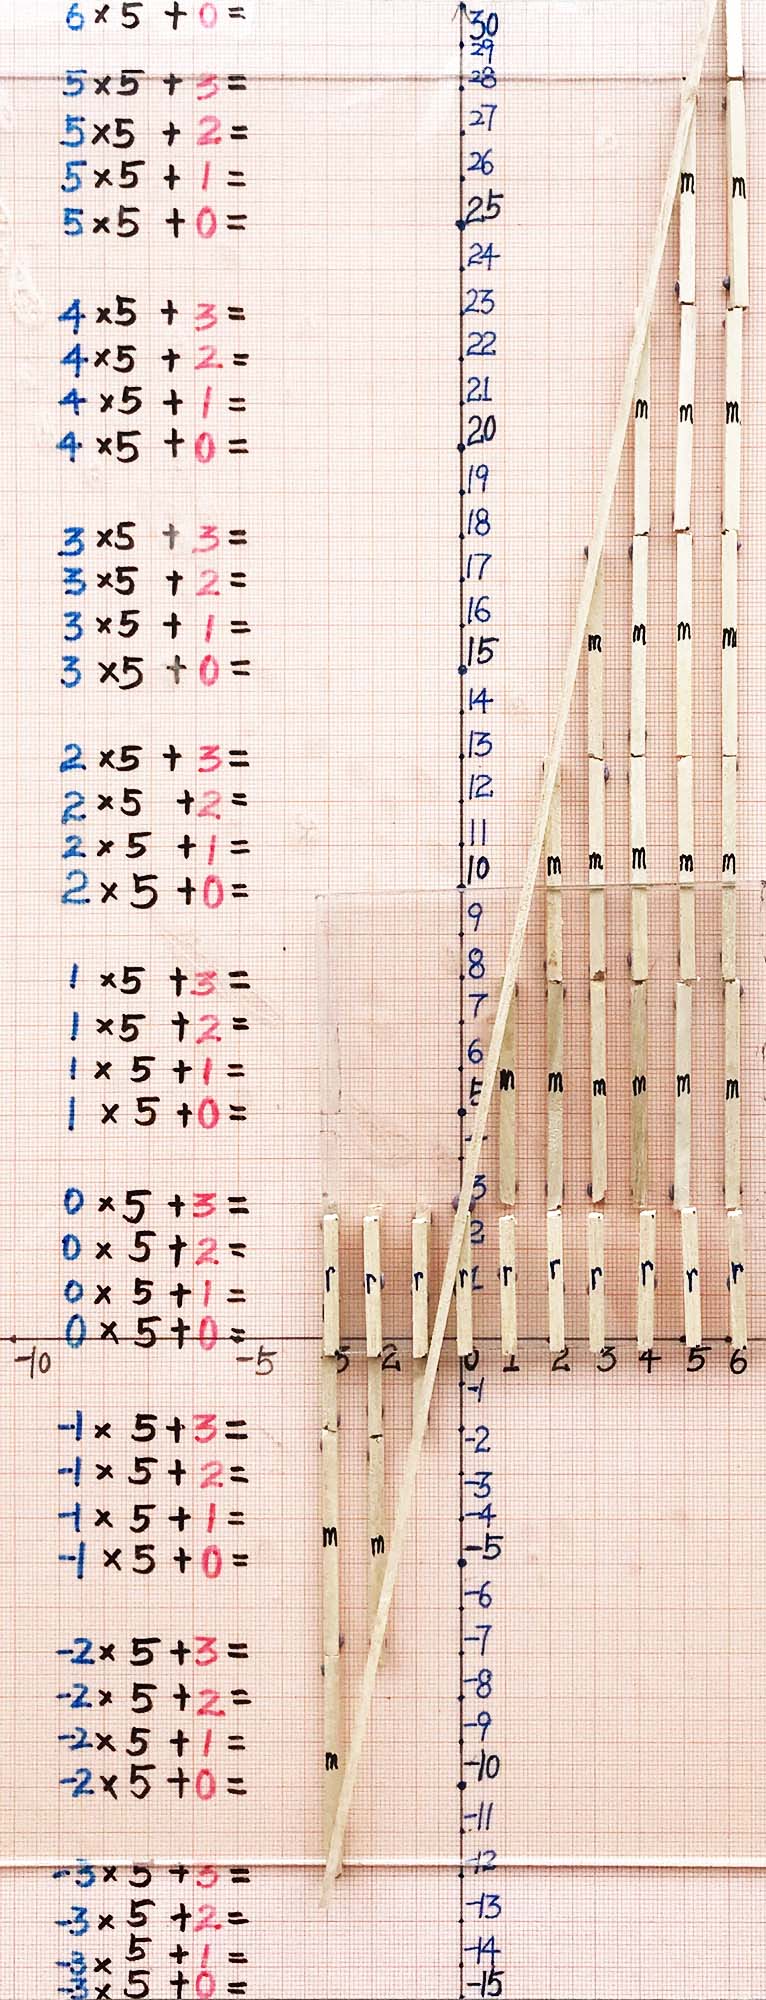 6 × 5 + 0 =
5 × 5 + 3 =
5 × 5 + 2 =
5 × 5 + 1 =
5 × 5 + 0 =
4 × 5 + 3 =
4 × 5 + 2 =
4 × 5 + 1 =
4 × 5 + 0 =
3 × 5 + 3 =
3 × 5 + 2 =
3 × 5 + 1 =
3 × 5 + 0 =
2 × 5 + 3 =
2 × 5 + 2 =
2 × 5 + 1 =
2 × 5 + 0 =
1 × 5 + 3 =
1 × 5 + 2 =
1 × 5 + 1 =
1 × 5 + 0 =
0 × 5 + 3 =
0 × 5 + 2 =
0 × 5 + 1 =
0 × 5 + 0 =
-1 × 5 + 3 =
-1 × 5 + 2 =
-1 × 5 + 1 =
-1 × 5 + 0 =
-2 × 5 + 3 =
-2 × 5 + 2 =
-2 × 5 + 1 =
-2 × 5 + 0 =
-3 × 5 + 3 =
-3 × 5 + 2 =
-3 × 5 + 1 =
-3 × 5 + 0 =
30
29
28
27
26
25
24
23
22
21
20
19
18
17
16
15
14
13
12
11
10
9
8
7
6
5
3
2
1
-10 -5 2 0 1 2 3 4 5 6
-1
-2
-3
-4
-5
-6
-7
-8
-9
-10
-11
-12
-13
-14
-15
m m
m m m
m m m m
m m m m m
m m m m m m
r r r r r r r r r r
m m
m